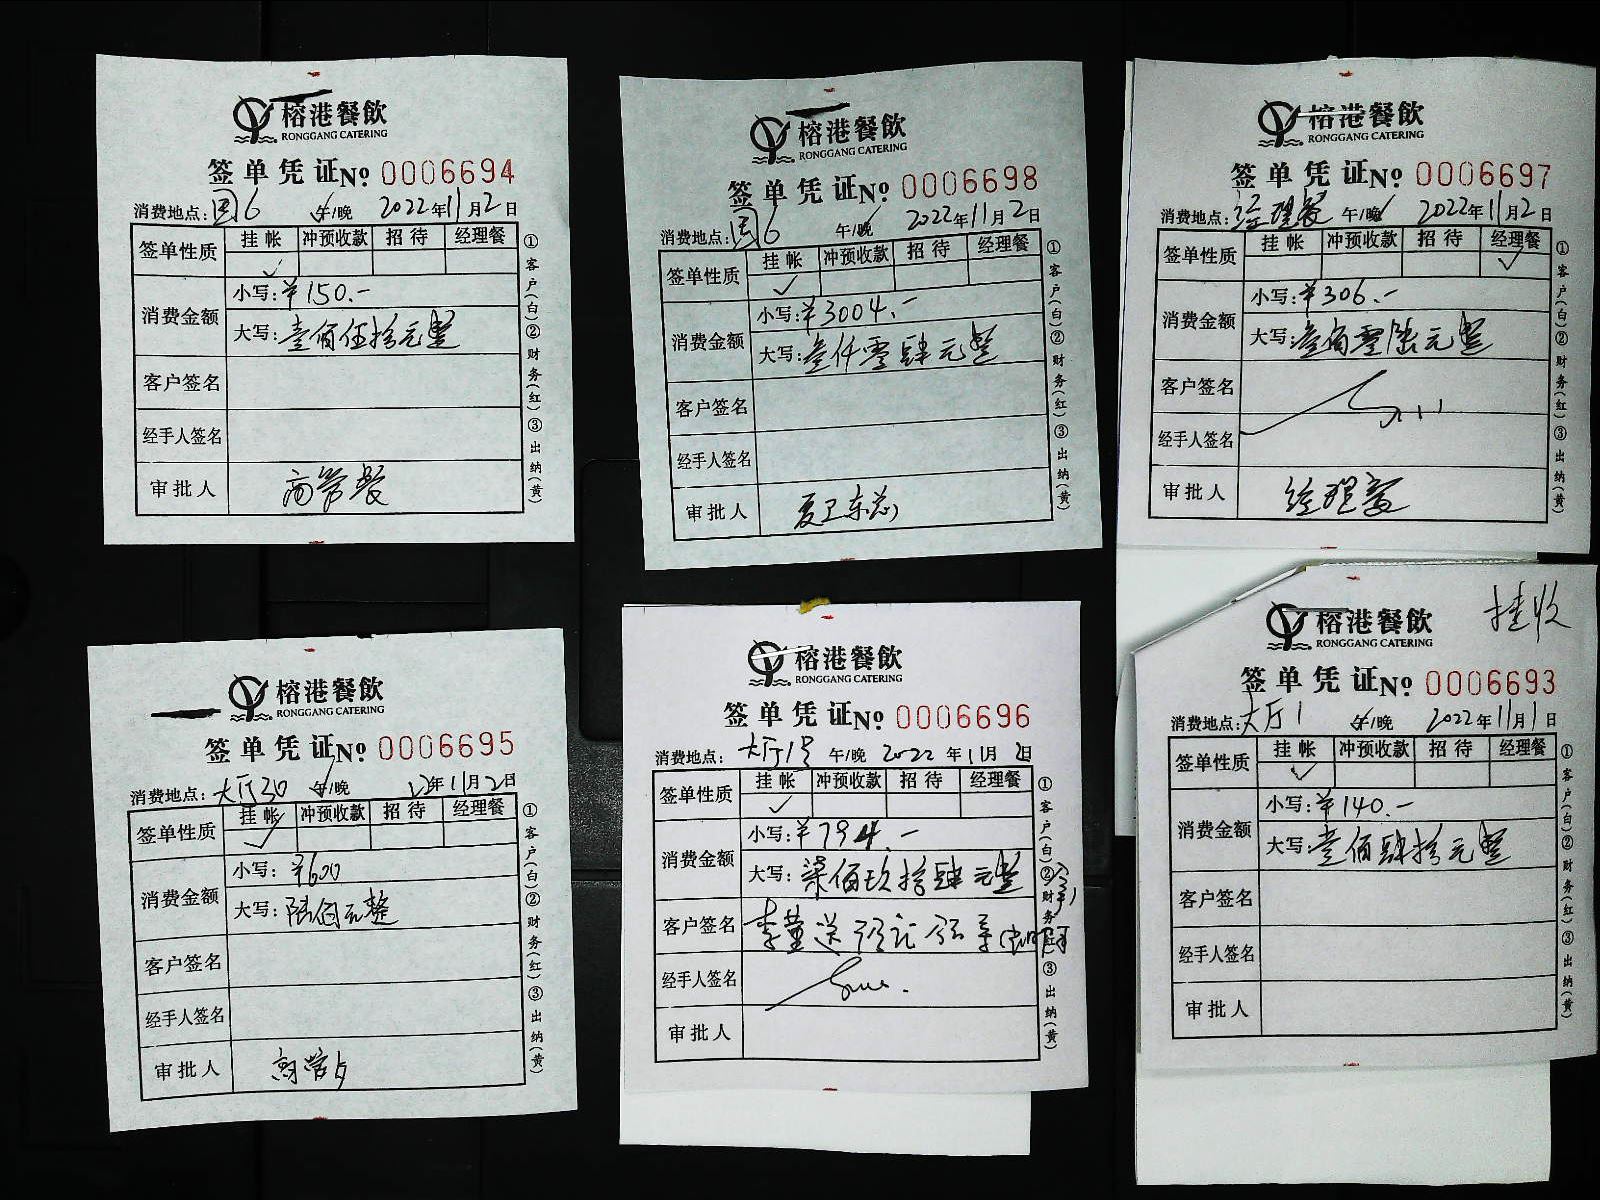 榕港餐飲
RONGGANG CATERING
签单凭证№ 0006694
消费地点: 国6 午/晚 2022年11月2日
签单性质 挂帐 冲预收款 招待 经理餐
✓
消费金额 小写:¥150.-
大写:壹佰伍拾元整
客户签名
经手人签名
审批人 高管餐
①客户(白)②财务(红)③出纳(黄)
榕港餐飲
RONGGANG CATERING
签单凭证№ 0006698
消费地点: 国6 午/晚 2022年11月2日
签单性质 挂帐 冲预收款 招待 经理餐
✓
消费金额 小写:¥3004.-
大写:叁仟零肆元整
客户签名
经手人签名
审批人 夏卫东总
①客户(白)②财务(红)③出纳(黄)
榕港餐飲
RONGGANG CATERING
签单凭证№ 0006697
消费地点: 经理餐 午/晚 2022年11月2日
签单性质 挂帐 冲预收款 招待 经理餐
✓
消费金额 小写:¥306.-
大写:叁佰零陆元整
客户签名
经手人签名
审批人 经理餐
①客户(白)②财务(红)③出纳(黄)
榕港餐飲
RONGGANG CATERING
签单凭证№ 0006695
消费地点: 大厅30 午/晚 22年11月2日
签单性质 挂帐 冲预收款 招待 经理餐
✓
消费金额 小写:¥600
大写:陆佰元整
客户签名
经手人签名
审批人 高管
①客户(白)②财务(红)③出纳(黄)
榕港餐飲
RONGGANG CATERING
签单凭证№ 0006696
消费地点: 大厅1号 午/晚 2022年11月2日
签单性质 挂帐 冲预收款 招待 经理餐
✓
消费金额 小写:¥794.-
大写:柒佰玖拾肆元整
客户签名 李董送
经手人签名
审批人
①客户(白)②财务(红)③出纳(黄)
挂收
榕港餐飲
RONGGANG CATERING
签单凭证№ 0006693
消费地点: 大厅1 午/晚 2022年11月1日
签单性质 挂帐 冲预收款 招待 经理餐
✓
消费金额 小写:¥140.-
大写:壹佰肆拾元整
客户签名
经手人签名
审批人
①客户(白)②财务(红)③出纳(黄)